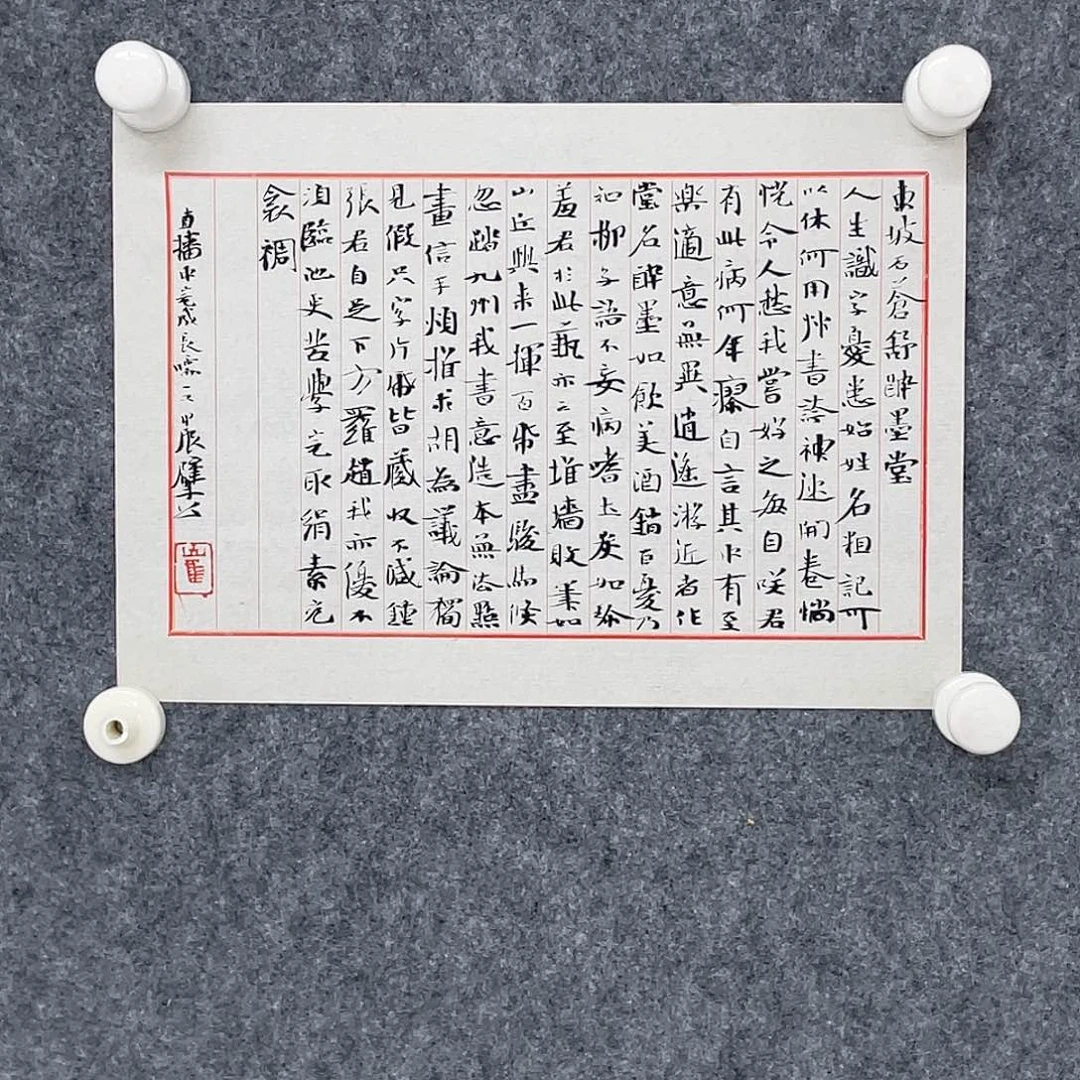 東坡石蒼舒醉墨堂
人生識字憂患始姓名粗記可
以休何用草書誇神速開卷惝
怳令人愁我嘗好之每自咲君
有此病何年瘳自言其中有至
樂適意無異逍遙游近者作
堂名醉墨如飲美酒銷百憂乃
知柳子語不妄病嗜土炭如珍
羞君於此藝亦云至堆牆敗筆如
山丘興來一揮百紙盡駿馬倏
忽踏九州我書意造本無法點
畫信手煩推求胡為議論獨
見假只字片紙皆藏收不減鍾
張君自足下方羅趙我亦優不
須臨池更苦學完取絹素充
衾裯
直播中 成 甲辰肇